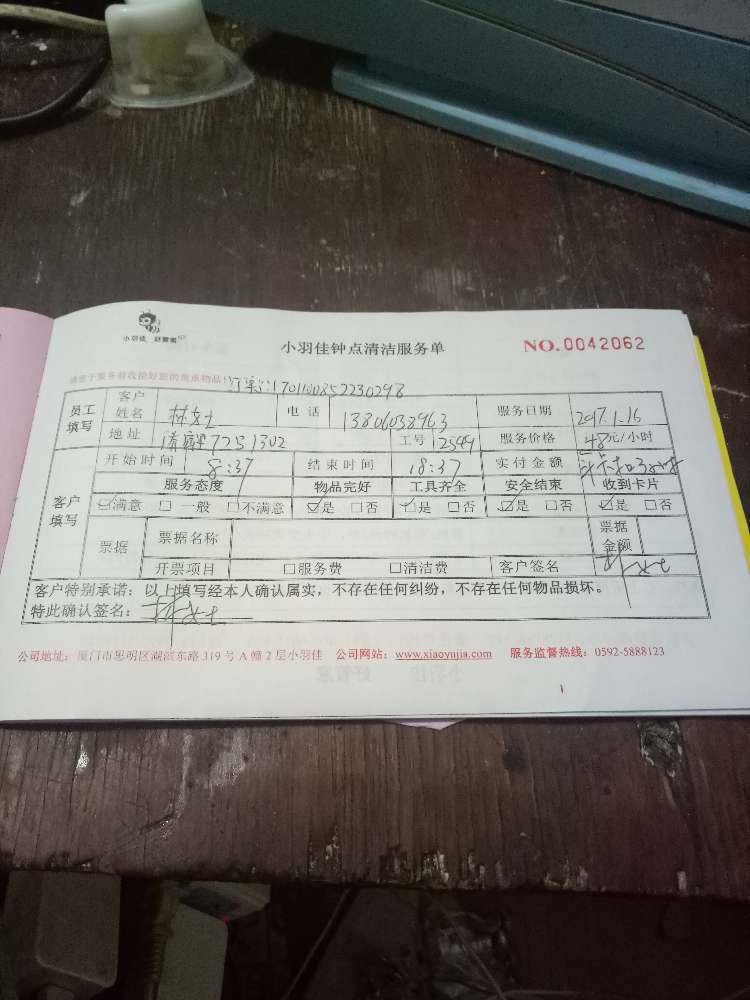 小羽佳
小羽佳钟点清洁服务单
NO.0042062
请您于服务前收拾好您的贵重物品!订单:1701100852230298
员工填写 客户姓名 林女士 电话 13806038963 服务日期 2017.1.16
地址 72号1302 工号 12549 服务价格 48元/小时
客户填写 开始时间 8:37 结束时间 18:37 实付金额
服务态度 物品完好 工具齐全 安全结束 收到卡片
☑满意 □一般 □不满意 ☑是 □否 ☑是 □否 ☑是 □否 ☑是 □否
票据 票据名称 票据金额
开票项目 □服务费 □清洁费 客户签名 林女士
客户特别承诺:以上填写经本人确认属实,不存在任何纠纷,不存在任何物品损坏。
特此确认签名:林女士
公司地址:厦门市思明区湖滨东路 319 号 A 幢 2 层小羽佳 公司网站:www.xiaoyujia.com 服务监督热线:0592-5888123